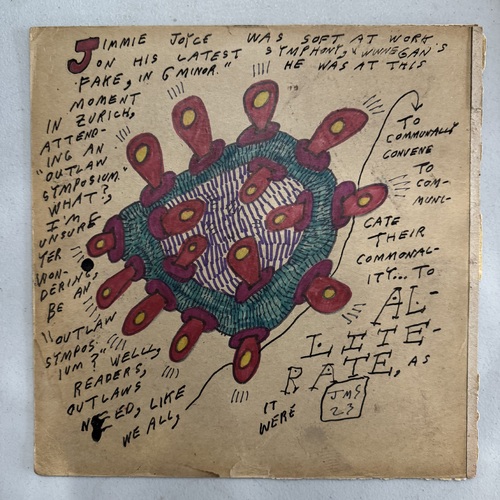 JIMMIE JOYCE WAS SOFT AT WORK
ON HIS LATEST SYMPHONY, "WINNEGAN'S
FAKE, IN G MINOR." HE WAS AT THIS
MOMENT
IN ZURICH,
ATTEND-
ING AN
"OUTLAW
SYMPOSIUM."
WHAT?,
I'M
UNSURE
YER
WON-
DERING,
BE AN
"OUTLAW
SYMPOS-
IUM?" WELL,
READERS,
OUTLAWS
NEED, LIKE
WE ALL,
TO
COMMUNALLY
CONVENE
TO
COM-
MUNI-
CATE
THEIR
COMMONAL-
ITY... TO
AL-
LITE-
RATE, AS
IT
WERE
JMS
23